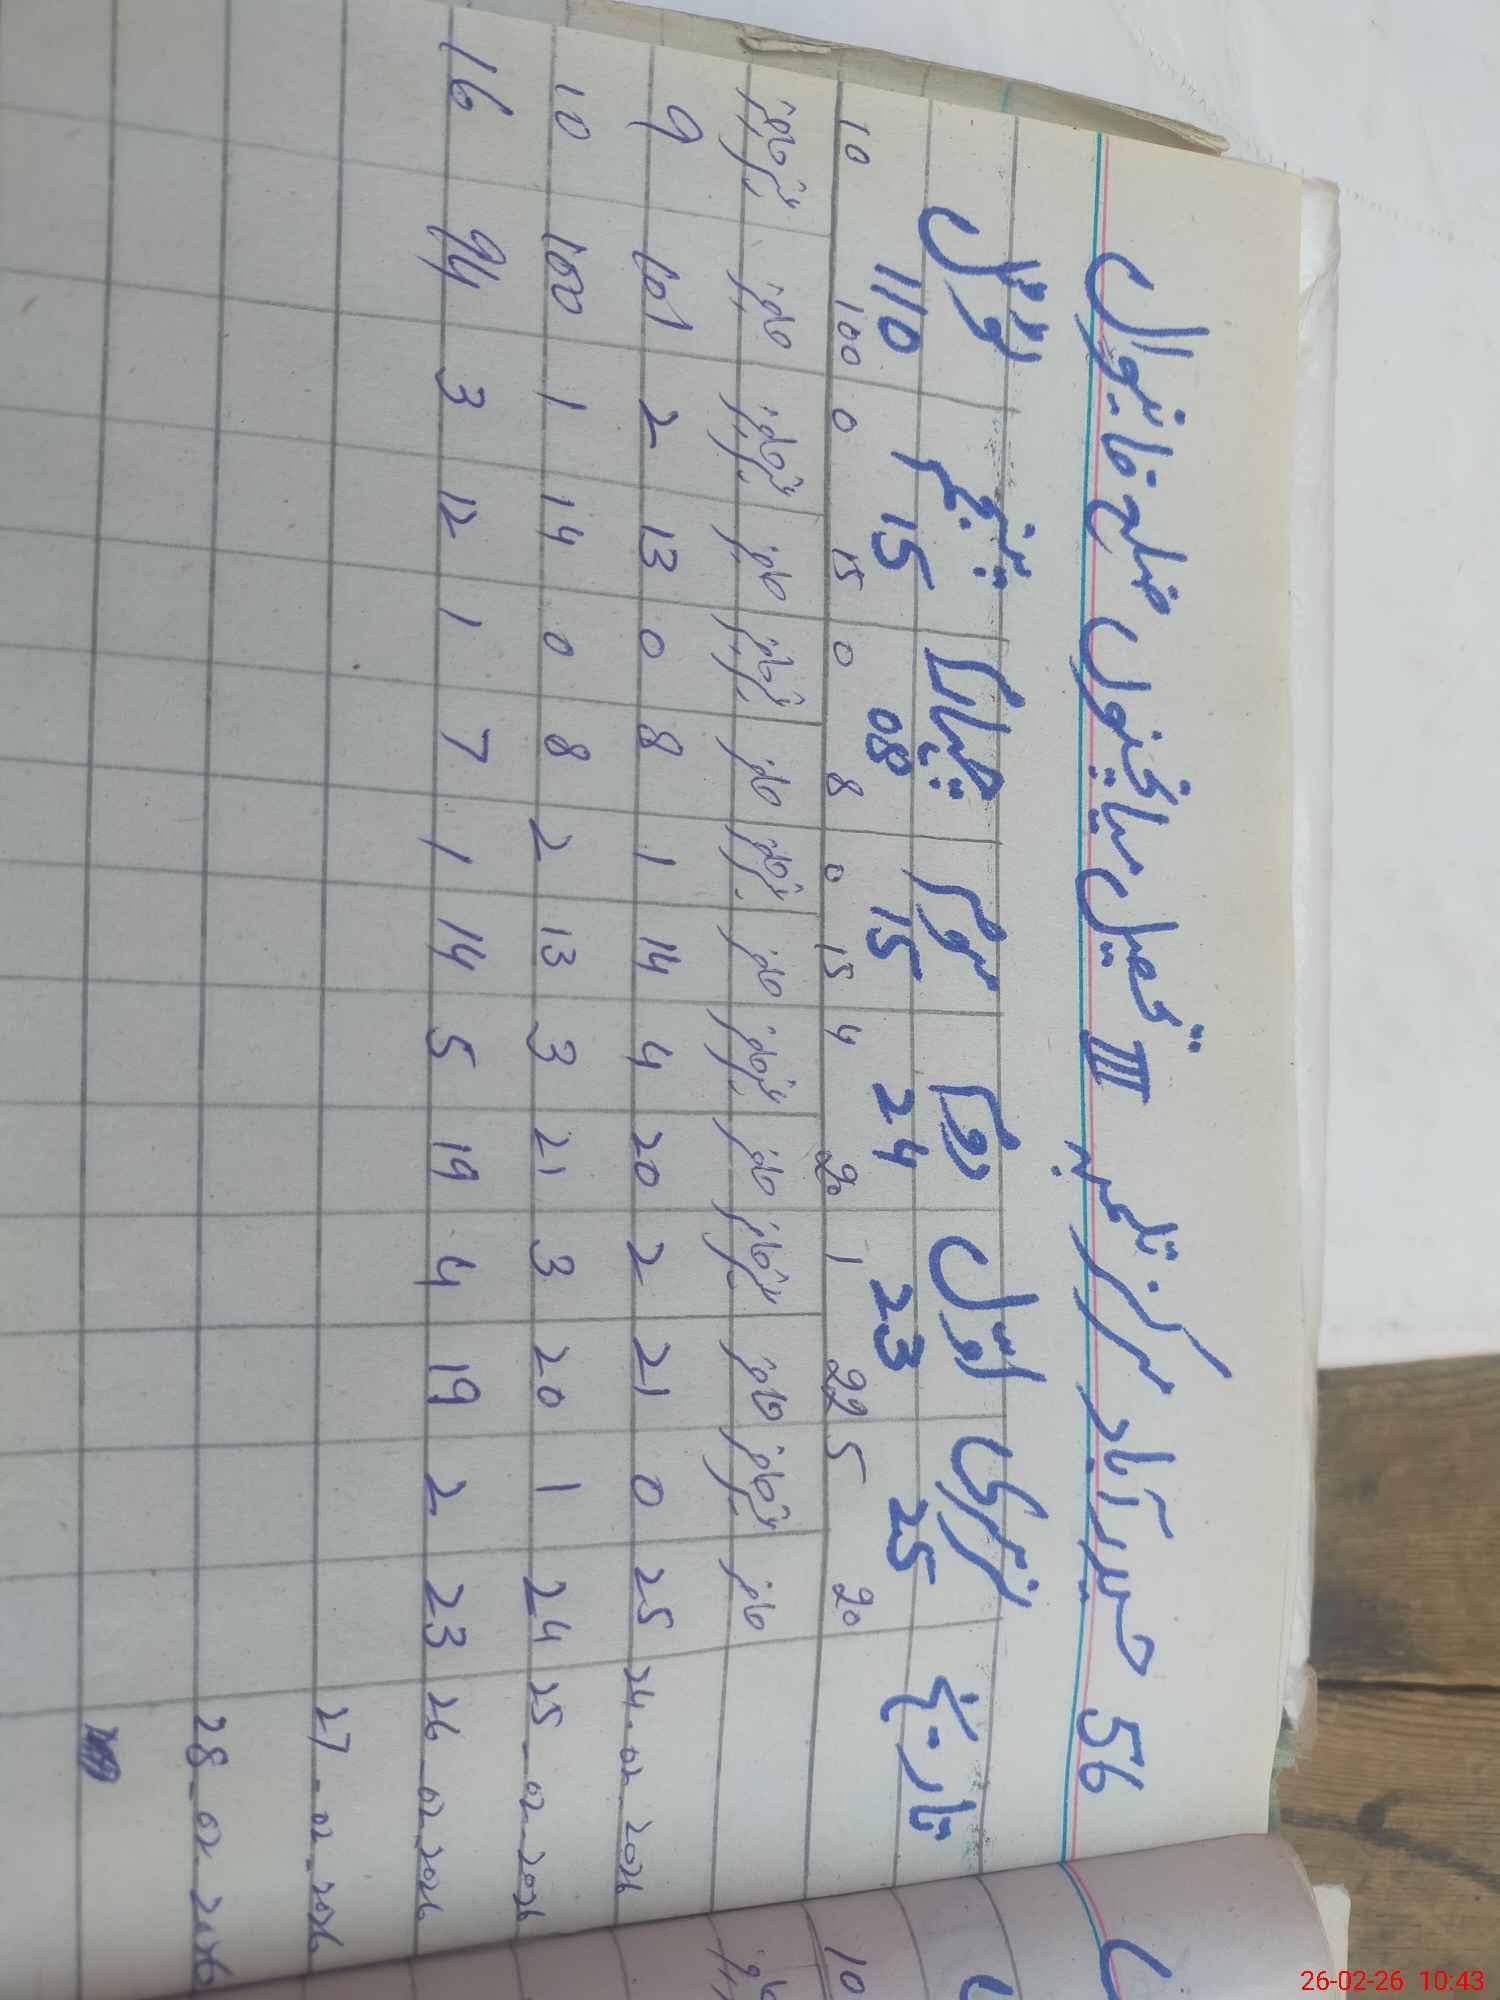 56 حیدر آباد مرکز تلمبہ III تحصیل میاں چنوں ضلع خانیوال
تاریخ نرسری اوّل دوم سوم چہارم پنجم ٹوٹل
25 23 24 15 08 15 110
20 5 22 1 20 4 15 0 8 0 15 0 100 10
حاضر غیرحاضر حاضر غیرحاضر حاضر غیرحاضر حاضر غیرحاضر حاضر غیرحاضر حاضر غیرحاضر حاضر غیرحاضر
24-02-2026 25 0 21 2 20 4 14 1 8 0 13 2 101 9
25-02-2026 24 1 20 3 21 3 13 2 8 0 14 1 100 10
26-02-2026 23 2 19 4 19 5 14 1 7 1 12 3 94 16
27-02-2026
28-02-2026
10
26-02-26 10:43